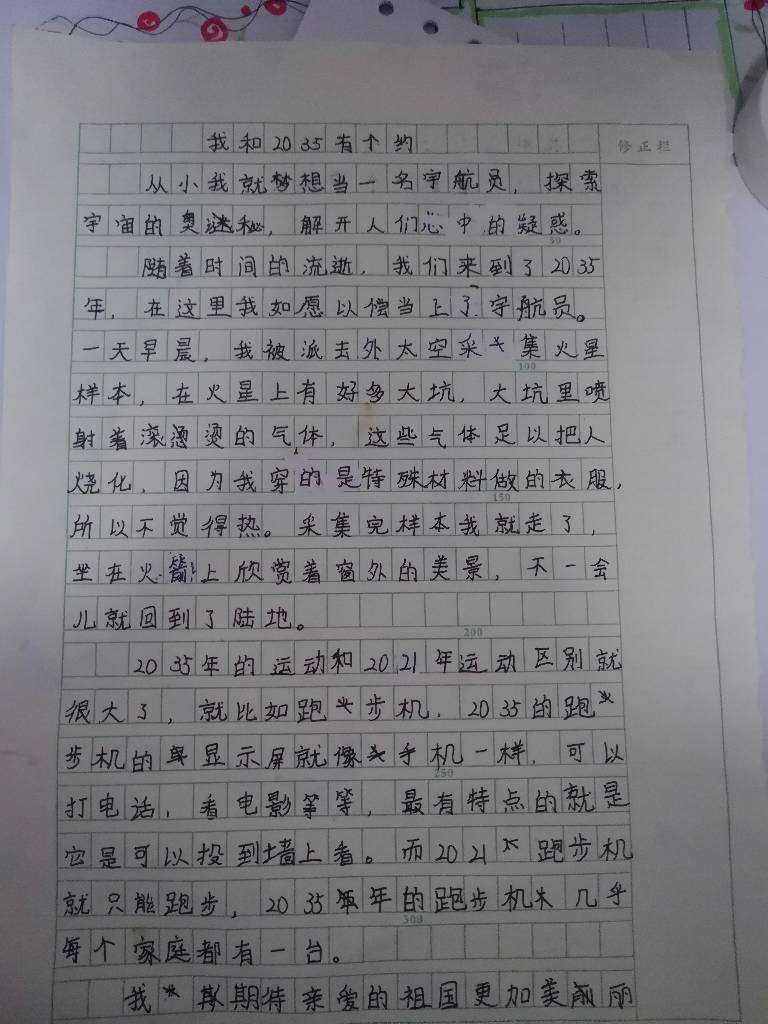 我和2035有个约
修正栏
从小我就梦想当一名宇航员，探索
宇宙的奥秘，解开人们心中的疑惑。
50
随着时间的流逝，我们来到了2035
年，在这里我如愿以偿当上了宇航员。
一天早晨，我被派去外太空采集火星
100
样本，在火星上有好多大坑，大坑里喷
射着滚烫烫的气体，这些气体足以把人
烧化，因为我穿的是特殊材料做的衣服，
150
所以不觉得热。采集完样本我就走了，
坐在火箭上欣赏着窗外的美景，不一会
儿就回到了陆地。
200
2035年的运动和2021年运动区别就
很大了，就比如跑步机，2035的跑
步机的显示屏就像手机一样，可以
250
打电话，看电影等等，最有特点的就是
它是可以投到墙上看。而2021跑步机
就只能跑步，2035年的跑步机几乎
300
每个家庭都有一台。
我期待亲爱的祖国更加美丽